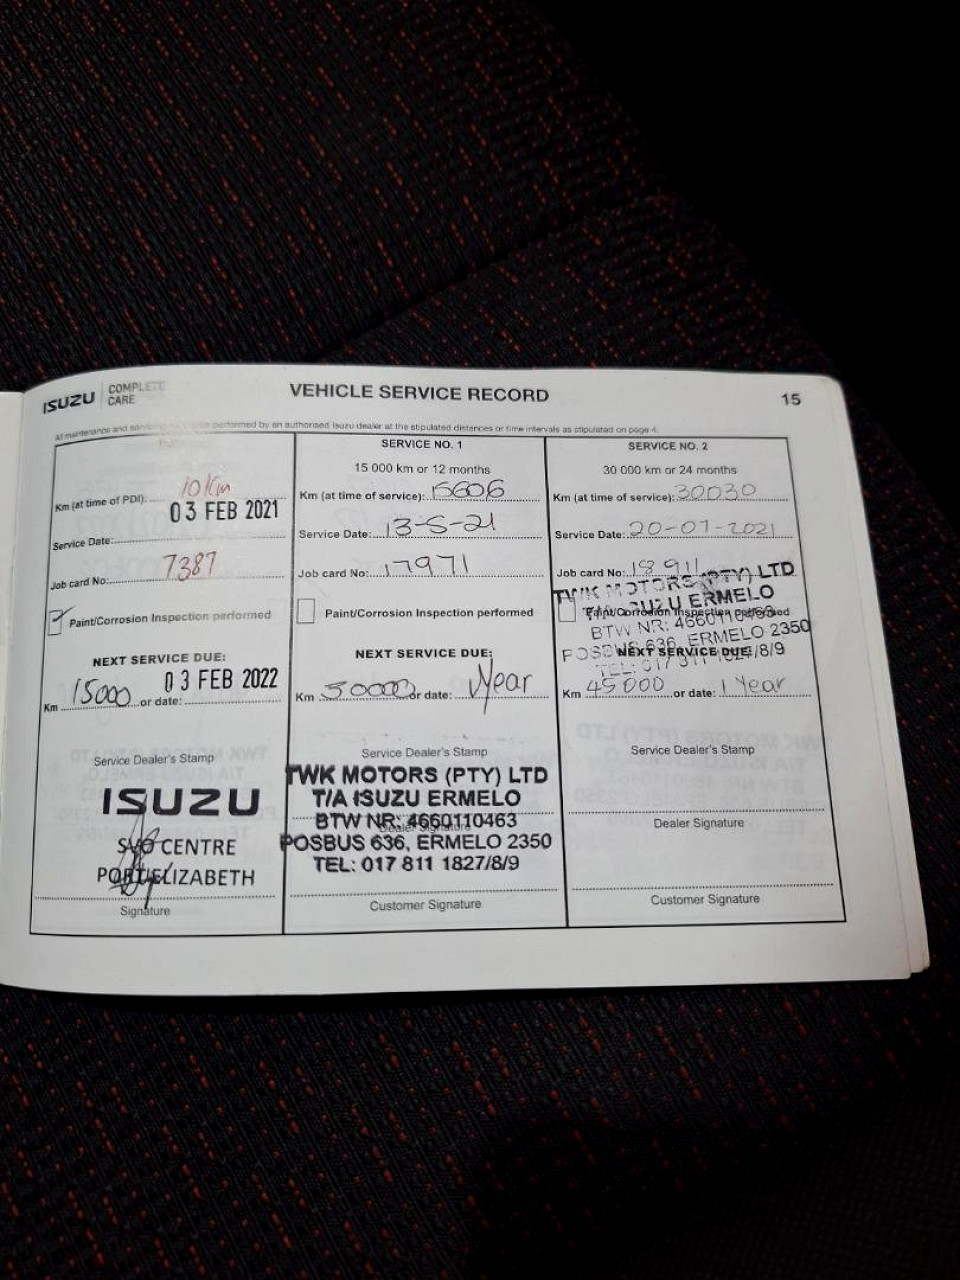 ISUZU COMPLETE CARE
VEHICLE SERVICE RECORD
15
All maintenance and performed by an authorised Isuzu dealer at the stipulated distances or time intervals as stipulated on page 4.
Km (at time of PDI): 10 Km
03 FEB 2021
Service Date:
Job card No: 7387
Paint/Corrosion Inspection performed
NEXT SERVICE DUE:
03 FEB 2022
Km 15000 or date:
Service Dealer's Stamp
ISUZU
CENTRE
PORT ELIZABETH
Signature
SERVICE NO. 1
15 000 km or 12 months
Km (at time of service): 15606
Service Date: 13-5-21
Job card No: 17971
Paint/Corrosion Inspection performed
NEXT SERVICE DUE:
Km 30000 or date: 1 Year
Service Dealer's Stamp
TWK MOTORS (PTY) LTD
T/A ISUZU ERMELO
BTW NR: 4660110463
Dealer Signature
POSBUS 636, ERMELO 2350
TEL: 017 811 1827/8/9
Customer Signature
SERVICE NO. 2
30 000 km or 24 months
Km (at time of service): 30030
Service Date: 20-07-2021
Job card No: 18911
TWK MOTORS (PTY) LTD
T/A ISUZU ERMELO
Paint/Corrosion Inspection performed
BTW NR: 4660110463
POSBUS 636, ERMELO 2350
NEXT SERVICE DUE:
TEL: 017 811 1827/8/9
Km 45000 or date: 1 Year
Service Dealer's Stamp
Dealer Signature
Customer Signature